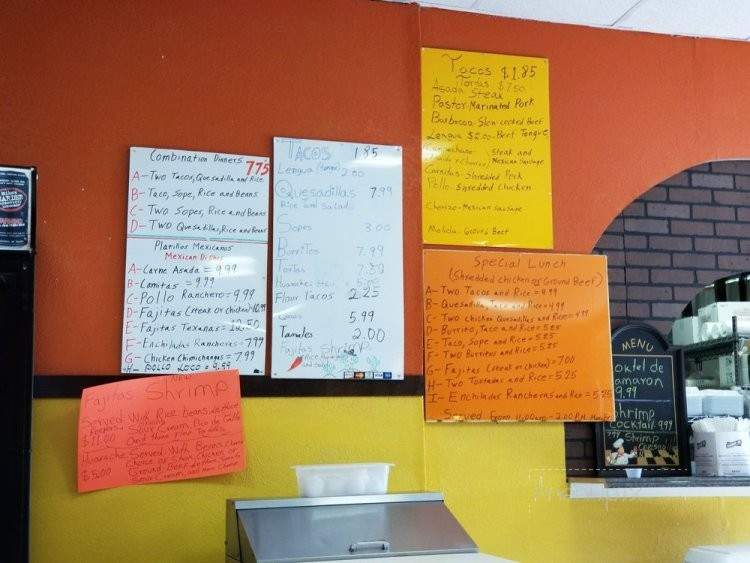 Combination Dinners 775
A- Two Tacos, Quesadilla and Rice
B- Taco, Sope, Rice and Beans
C- Two Sopes, Rice and Beans
D- Two Quesadillas, Rice and Beans
Platillos Mexicanos
Mexican Dishes
A- Carne Asada = 9.99
B- Carnitas = 9.99
C- Pollo Ranchero = 9.99
D- Fajitas (steak or chicken)
E- Fajitas Texanas = 10.50
F- Enchiladas Ranchera = 7.99
G- Chicken Chimichangas = 7.99
H- Pollo Loco = 9.99
Fajitas Shrimp
Served With Rice, beans
Sour Cream, Pico de Gallo
$11.00 And
Huarache Served With Beans
Choice of Steak, Chicken or
$5.00 Ground Beef
Sour Cream and
TACOS 1.85
Lengua 2.00
Quesadillas 7.99
Rice and Salad
Sopes 3.00
Burritos 7.99
Tortas
Huaraches
Flour Tacos 2.25
5.99
Tamales 2.00
Fajitas Shrimp
Tacos $1.85
Tortas $7.50
Asada Steak
Pastor Marinated Pork
Barbacoa Slow cooked Beef
Lengua $2.00 Beef Tongue
Steak and
Mexican Sausage
Carnitas Shredded Pork
Pollo Shredded Chicken
Chorizo Mexican Sausage
Molida Ground Beef
Special Lunch
(Shredded chicken or Ground Beef)
A- Two Tacos and Rice = 4.99
B- Quesadilla, Taco and Rice = 4.99
C- Two chicken Quesadillas and Rice = 4.99
D- Burrito, Taco and Rice = 5.25
E- Taco, Sope and Rice = 5.25
F- Two Burritos and Rice = 5.25
G- Fajitas (steak or chicken) = 7.00
H- Two Tostadas and Rice = 5.25
I- Enchiladas Rancheras and Rice = 5.25
Served From 11:00am - 2:00 P.M
MENU
oktel de
amaron
9.99
hrimp
cocktail 9.99
Shrimp